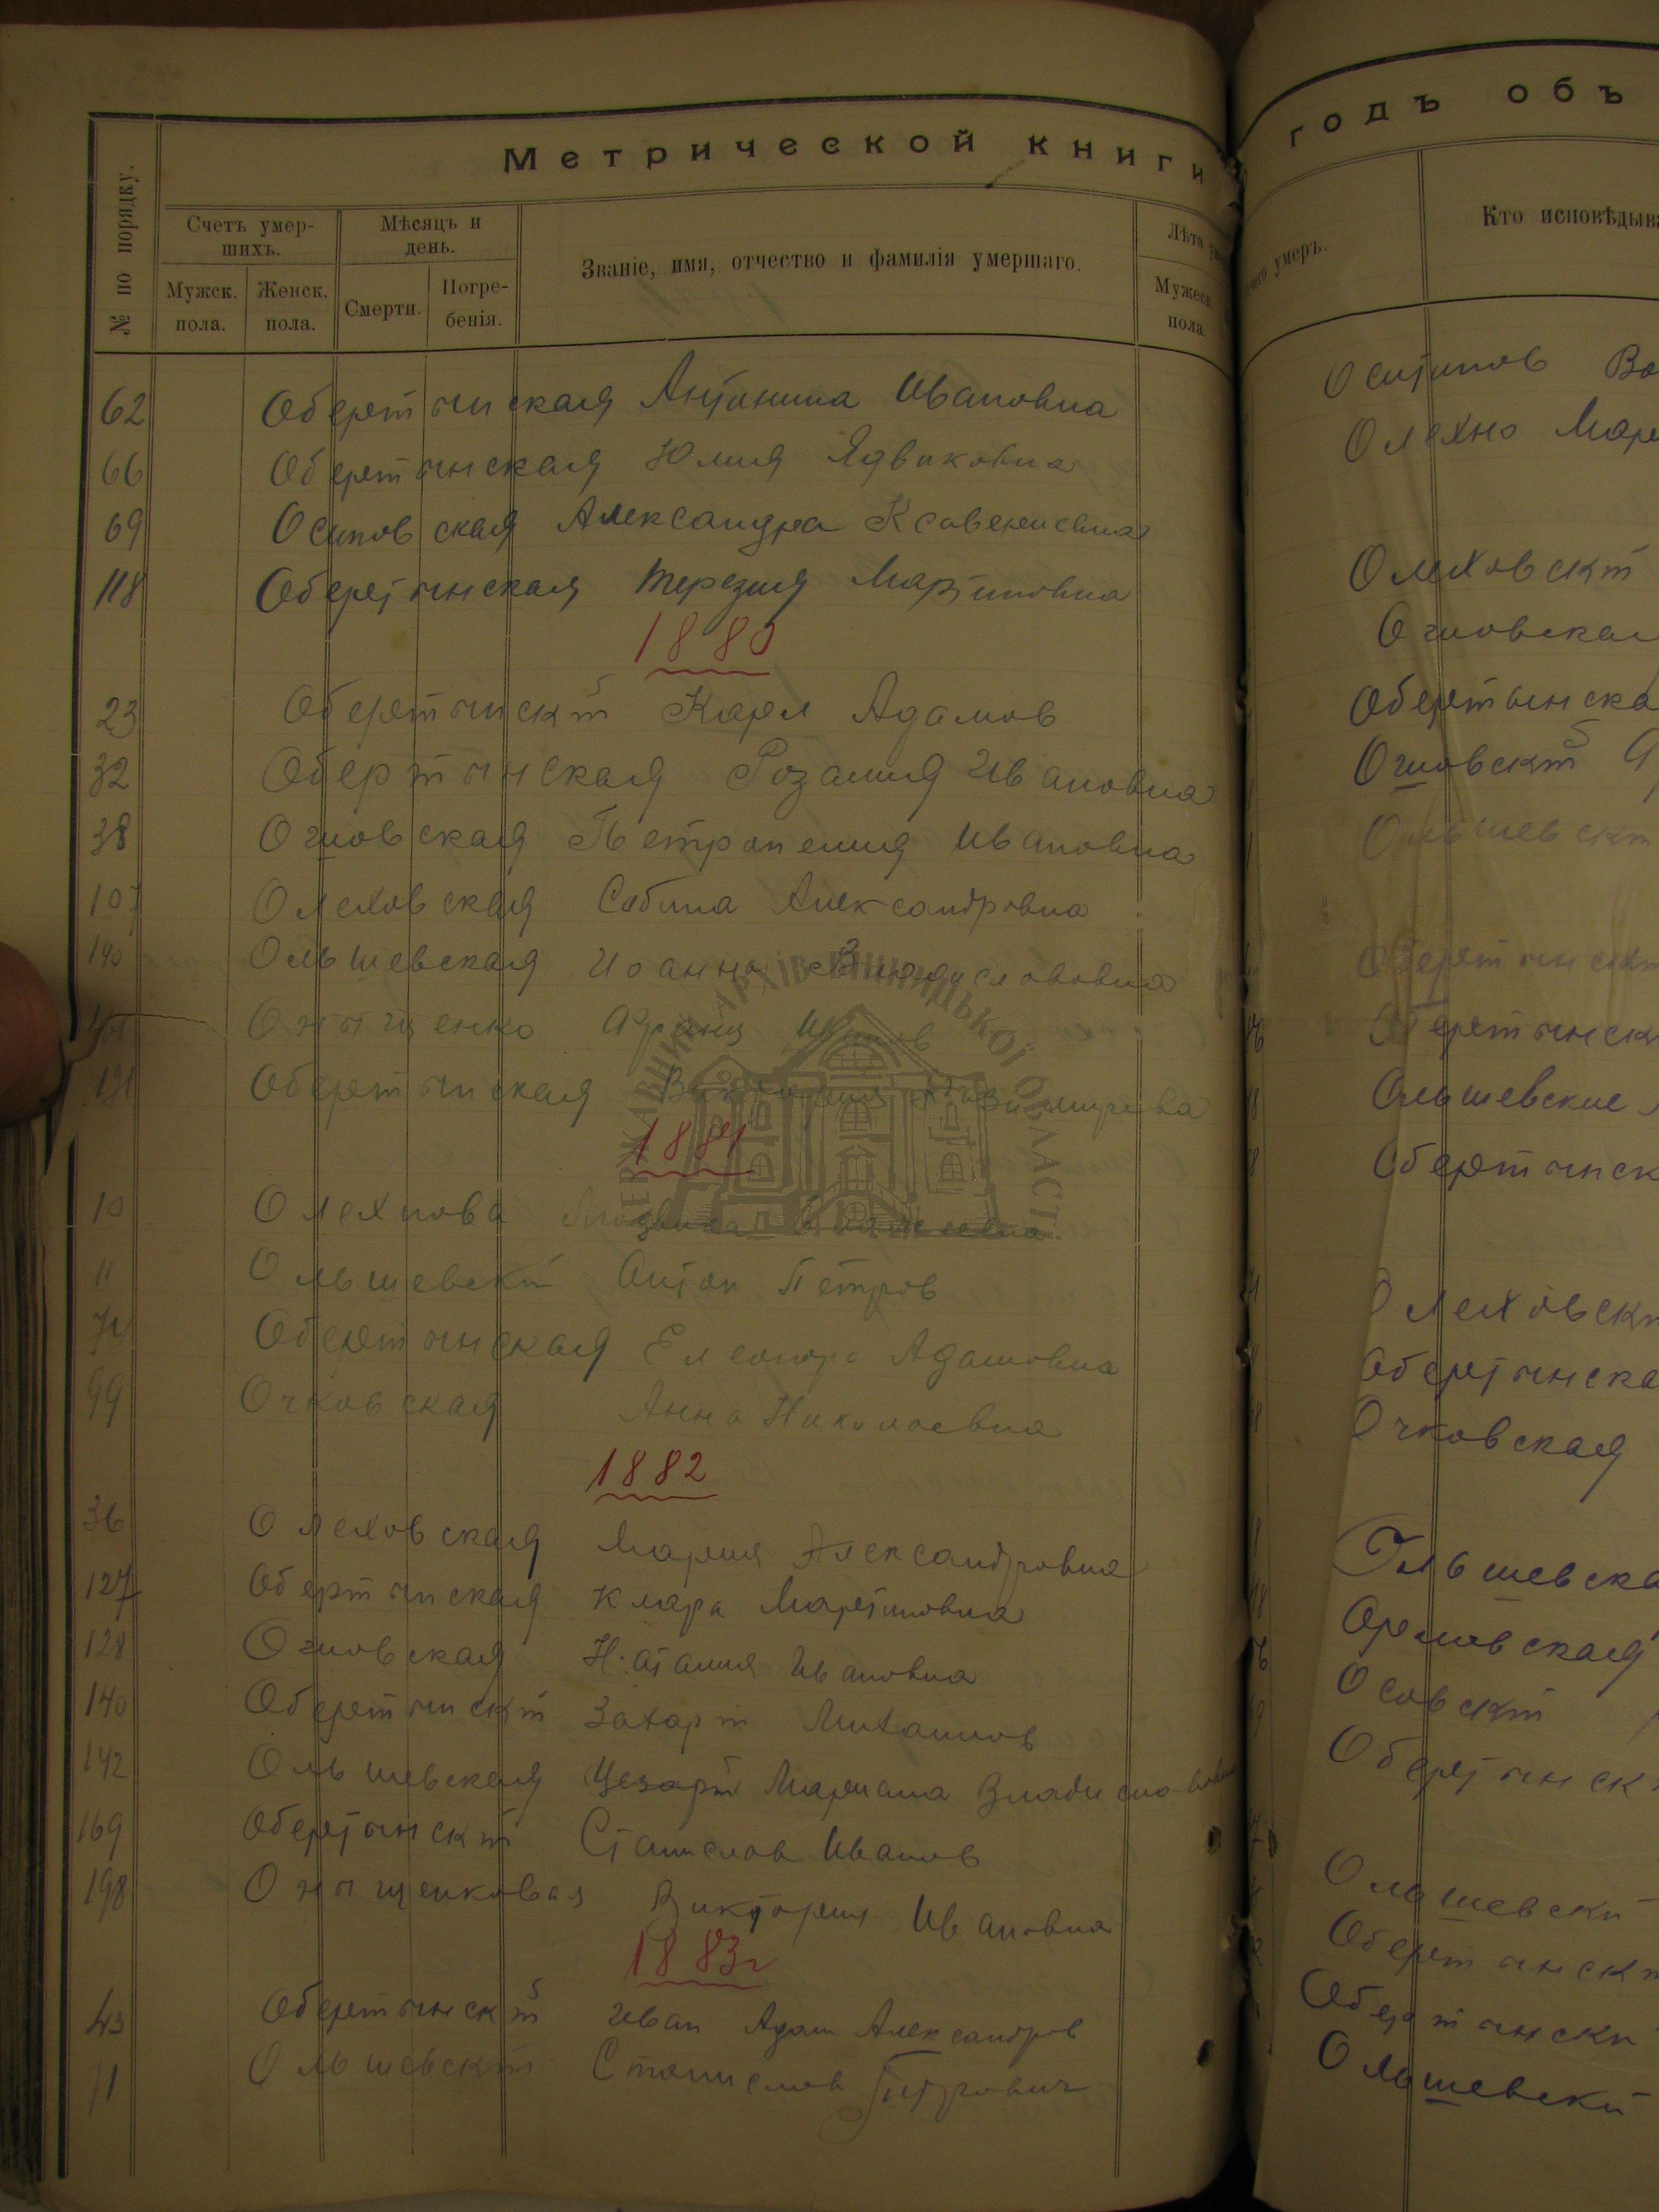 Метрической книги
№ по порядку.
Счетъ умер-
шихъ.
Мѣсяцъ и
день.
Званіе, имя, отчество и фамилія умершаго.
Лѣта
Мужск.
пола.
Женск.
пола.
Смерти.
Погре-
бенія.
Мужеск.
пола
62 Обертынская Антонина Ивановна
66 Обертынская Юлия
69 Осиповская Александра
118 Обертынская Терезия Мартиновна
1880
23 Обертынский Карл Адамов
32 Обертынская Розалия Ивановна
38 Огновская Петронелия Ивановна
107 Олеховская Сабина Александровна
140 Ольшевская Иоанна Владиславовна
Онищенко Иванов
Обертынская
1881
10 Олехнова
11 Ольшевский Антон Петров
74 Обертынская Елеонора Адамовна
99 Очковская Анна Николаевна
1882
36 Олеховская Мария Александровна
127 Обертынская Клара Мартиновна
128 Огновская Наталия Ивановна
140 Обертынский Захарий Михаилов
142 Ольшевская Цезарт Мариана
169 Обертынский Станислав Иванов
198 Онищенковая Виктория Ивановна
1883г
43 Обертынский Иван Адам Александров
71 Ольшевский Станислав Петрович
годъ объ
чего умеръ.
Кто исповѣдыва
Осипов Во
Олехно Мар
Олеховский
Огновская
Обертынска
Огновский
Ольшевский
Обертынский
Обертынск
Ольшевские
Обертынск
Олеховск
Обертынска
Очковская
Ольшевска
Орловская
Осовский
Обертынск
Ольшевски
Обертынск
Обертынски
Ольшевски
ДЕРЖАВНИЙ АРХІВ ВІННИЦЬКОЇ ОБЛАСТІ